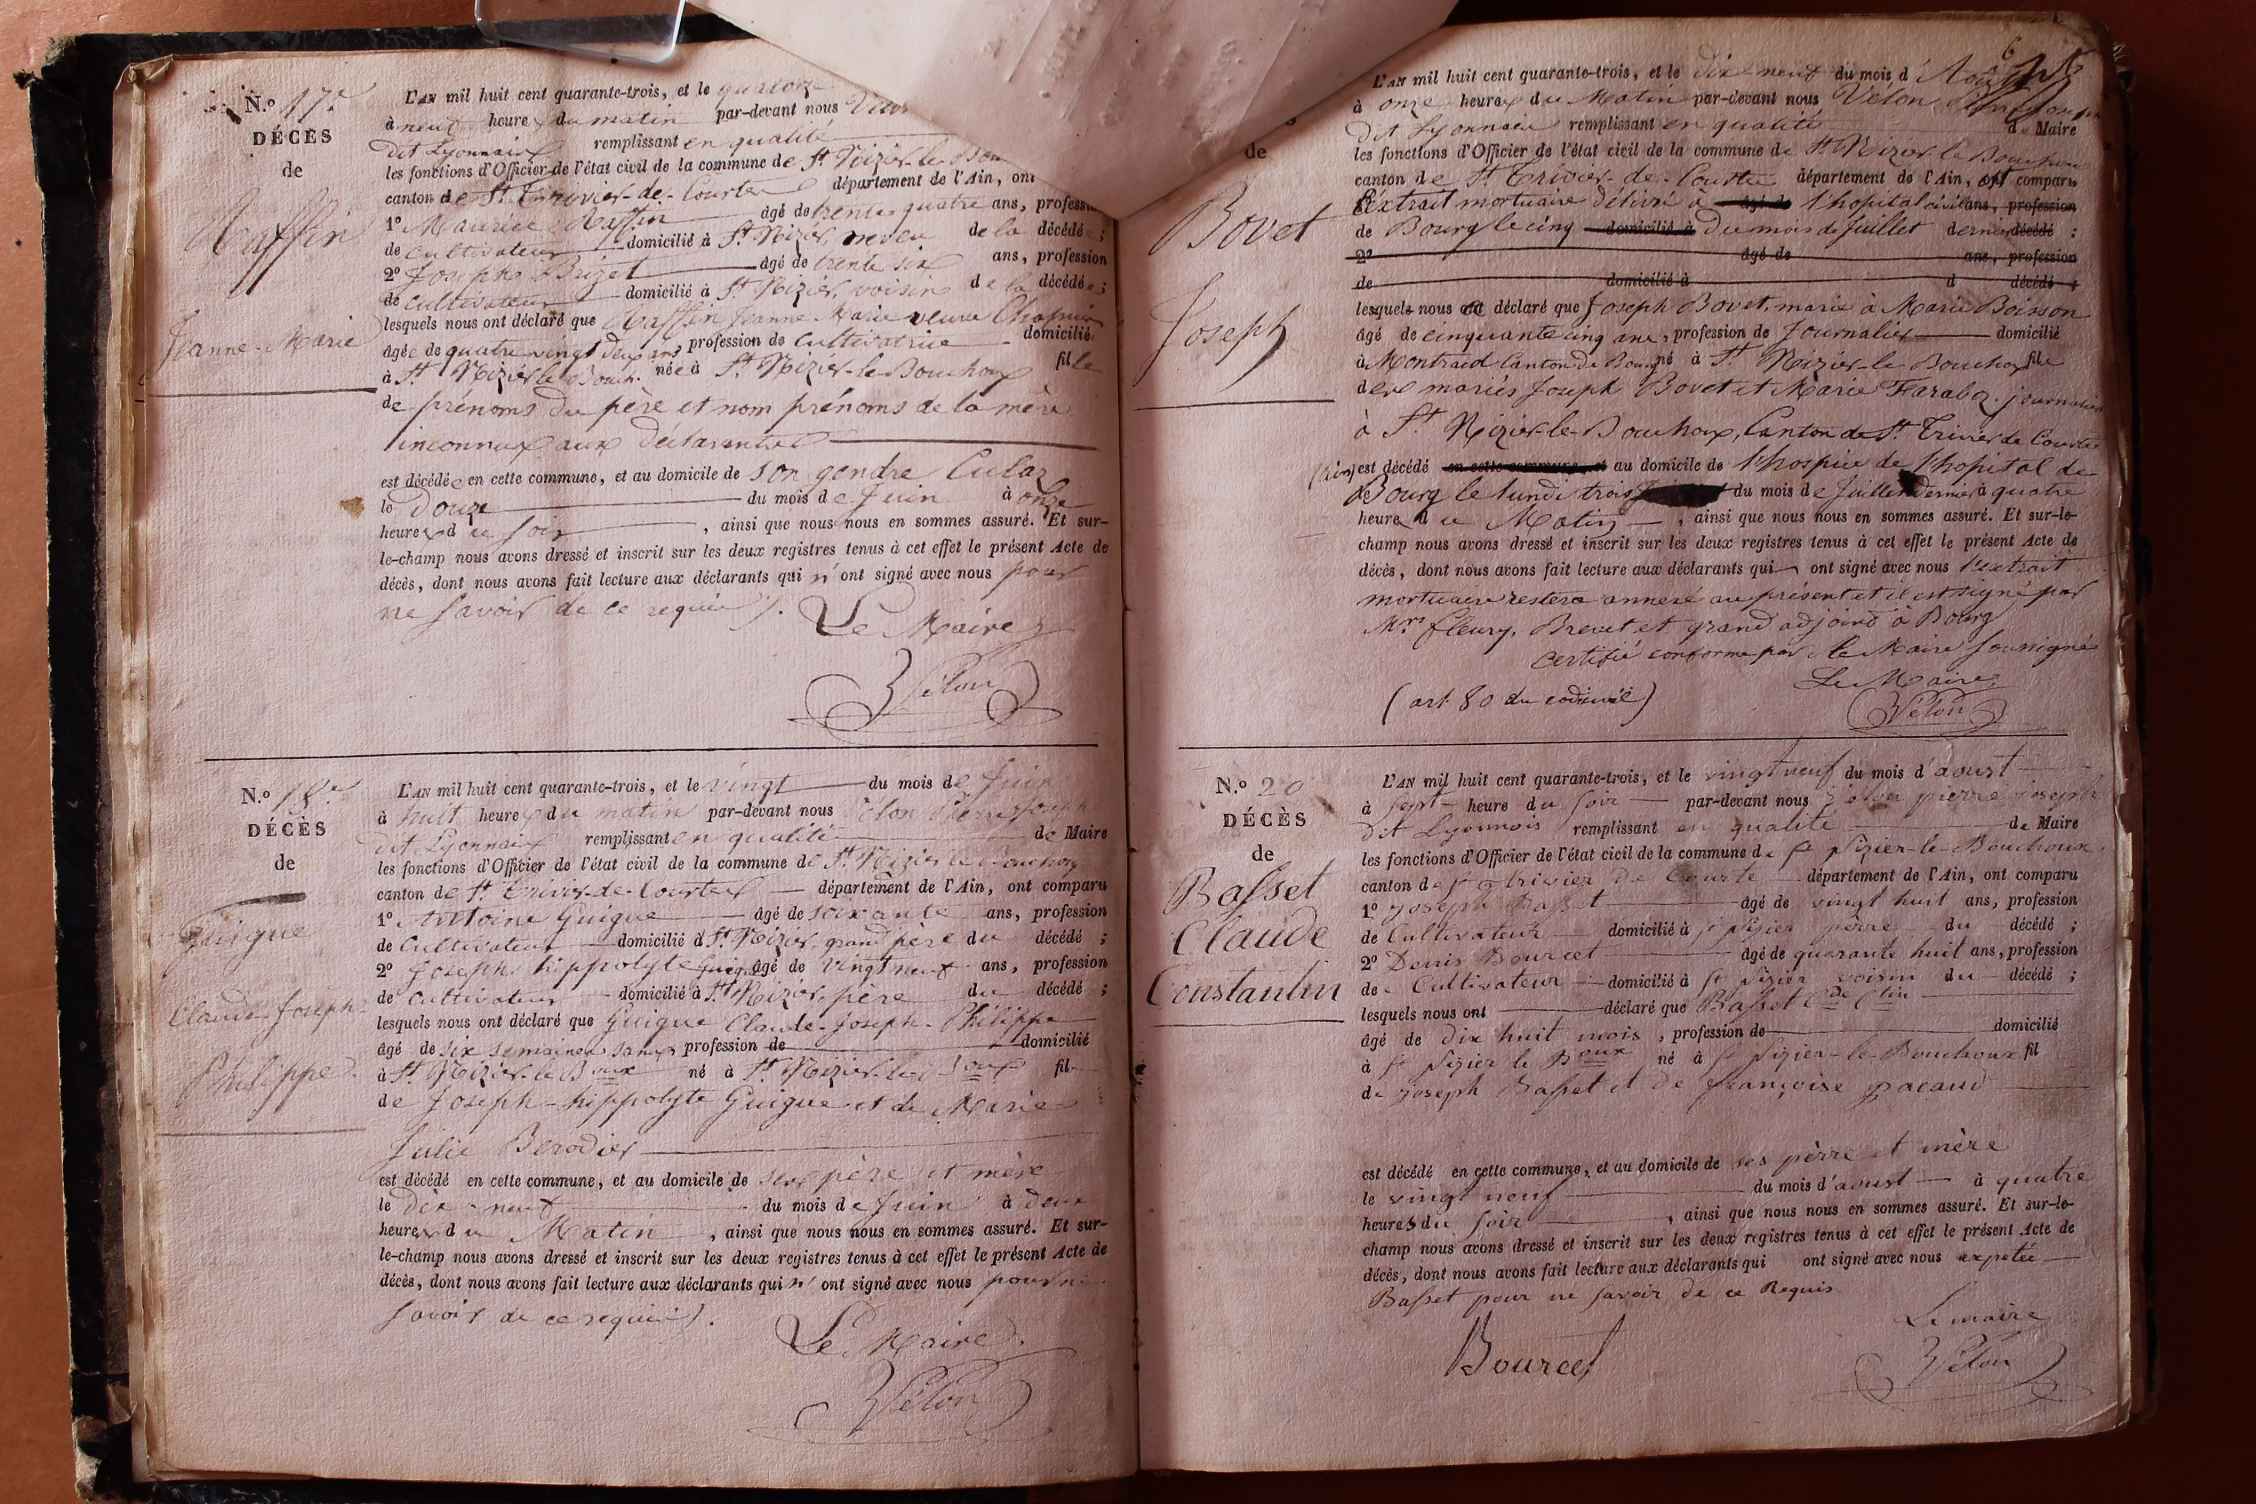 N.º 17.e
DÉCÈS
de
Raffin
Jeanne-Marie
L'AN mil huit cent quarante-trois, et le quatorze
à neuf heures du matin par-devant nous
dit Lyonnais remplissant en qualité
les fonctions d'Officier de l'état civil de la commune de St Nizier-le-Bou
canton de St Trivier-de-Courtes département de l'Ain, ont
1º Maurice Raffin âgé de trente quatre ans, profession
de cultivateur domicilié à St Nizier, neveu de la décédée ;
2º Joseph Brizet âgé de trente six ans, profession
de cultivateur domicilié à St Nizier, voisin de la décédée ;
lesquels nous ont déclaré que Raffin Jeanne-Marie veuve
âgée de quatre vingt deux ans, profession de cultivatrice domicilié
à St Nizier-le-Bouch. née à St Nizier-le-Bouchoux fille
de prénoms du père et nom prénoms de la mère
inconnus aux déclarants
est décédée en cette commune, et au domicile de son gendre Culaz
le douze du mois de Juin à onze
heures du soir, ainsi que nous nous en sommes assuré. Et sur-
le-champ nous avons dressé et inscrit sur les deux registres tenus à cet effet le présent Acte de
décès, dont nous avons fait lecture aux déclarants qui n'ont signé avec nous pour
ne savoir de ce requis.
Le Maire
Vélon
N.º 18.e
DÉCÈS
de
Guigue
Claude-Joseph-
Philippe
L'AN mil huit cent quarante-trois, et le vingt du mois de Juin
à huit heures du matin par-devant nous Vélon Pierre Joseph
dit Lyonnais remplissant en qualité de Maire
les fonctions d'Officier de l'état civil de la commune de St Nizier-le-Bouchoux
canton de St Trivier-de-Courtes département de l'Ain, ont comparu
1º Antoine Guigue âgé de soixante ans, profession
de Cultivateur domicilié à St Nizier, grand père du décédé ;
2º Joseph hippolyte Guigue âgé de vingt neuf ans, profession
de cultivateur domicilié à St Nizier, père du décédé ;
lesquels nous ont déclaré que Guigue Claude-Joseph-Philippe
âgé de six semaines sans profession de domicilié
à St Nizier-le-Boux né à St Nizier-le-Boux fil
de Joseph-hippolyte Guigue et de Marie
Julie Berodier
est décédé en cette commune, et au domicile de ses père et mère
le dix-neuf du mois de Juin à deux
heures du Matin, ainsi que nous nous en sommes assuré. Et sur-
le-champ nous avons dressé et inscrit sur les deux registres tenus à cet effet le présent Acte de
décès, dont nous avons fait lecture aux déclarants qui n'ont signé avec nous pour ne
savoir de ce requis.
Le Maire
Vélon
6
de
Bovet
Joseph
L'AN mil huit cent quarante-trois, et le dix neuf du mois d'Août
à onze heures du Matin par-devant nous Vélon
dit Lyonnais remplissant en qualité de Maire
les fonctions d'Officier de l'état civil de la commune de St Nizier-le-Bouchoux
canton de St Trivier-de-Courtes département de l'Ain, ont comparu
l'extrait mortuaire délivré à âgé de l'hopital civil ans, profession
de Bourg le cinq domicilié à Du mois de Juillet dernier décédé ;
2º âgé de ans, profession
de domicilié à d décédé ;
lesquels nous ont déclaré que Joseph Bovet, marié à Marie Boisson
âgé de cinquante cinq ans, profession de Journalier domicilié
à Montracd Canton de Bourg né à St Nizier-le-Bouchoux fils
des mariés Joseph Bovet et Marie Faraboz. journaliers
à St Nizier-le-Bouchoux, Canton de St Trivier de Courtes
est décédé en cette commune, et au domicile de l'hospice de l'hopital de
Bourg le lundi trois du mois de Juillet dernier à quatre
heures du Matin, ainsi que nous nous en sommes assuré. Et sur-le-
champ nous avons dressé et inscrit sur les deux registres tenus à cet effet le présent Acte de
décès, dont nous avons fait lecture aux déclarants qui ont signé avec nous l'extrait
mortuaire restera annexé au présent et il est signé par
Mrs fleury, Brevet et grand adjoind à Bourg
certifié conforme par le Maire soussigné
Le Maire
(art. 80 du code civil)
Vélon
N.º 20
DÉCÈS
de
Basset
Claude
Constantin
L'AN mil huit cent quarante-trois, et le vingt neuf du mois d'aoust
à sept heure du soir par-devant nous Vélon pierre joseph
dit Lyonnois remplissant en qualité de Maire
les fonctions d'Officier de l'état civil de la commune de St Nizier-le-Bouchoux
canton de St trivier de Courte département de l'Ain, ont comparu
1º joseph Basset âgé de vingt huit ans, profession
de Cultivateur domicilié à St Nizier père du décédé ;
2º Denis Bourcet âgé de quarante huit ans, profession
de Cultivateur domicilié à St Nizier voisin du décédé ;
lesquels nous ont déclaré que Basset Cde Ctin
âgé de dix huit mois, profession de domicilié
à St Nizier le Boux né à St Nizier-le-Bouchoux fil
de joseph Basset et de françoise pacaud
est décédé en cette commune, et au domicile de ses père et mère
le vingt neuf du mois d'aoust à quatre
heures du soir, ainsi que nous nous en sommes assuré. Et sur-le-
champ nous avons dressé et inscrit sur les deux registres tenus à cet effet le présent Acte de
décès, dont nous avons fait lecture aux déclarants qui ont signé avec nous
Basset pour ne savoir de ce Requis
Le maire
Bourcet
Vélon